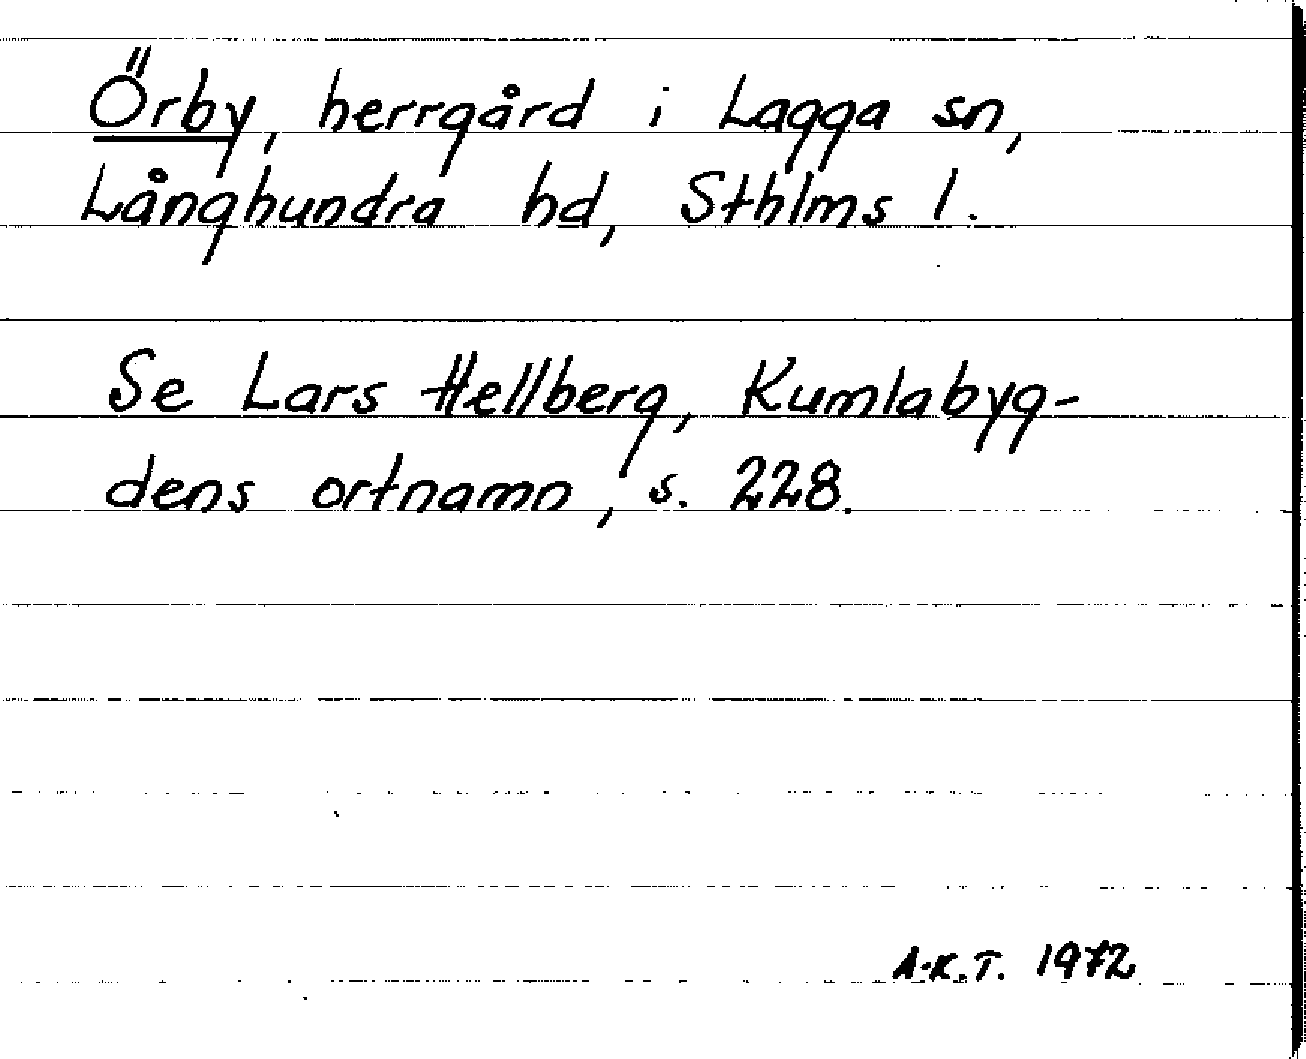 Örby, herrgård i Lagga sn,
Långhundra hd, Sthlms l.
Se Lars Hellberg, Kumlabyg-
dens ortnamn, s. 228.
A-K.T. 1972